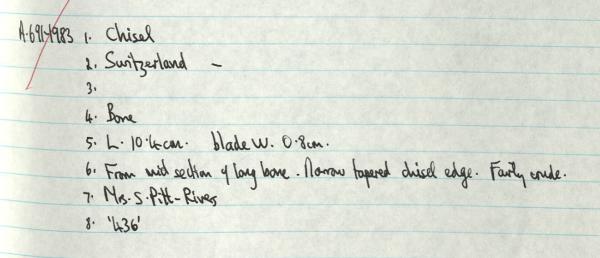 A.691.1983 1. Chisel
2. Switzerland -
3.
4. Bone
5. L. 10.4cm. blade W. 0.8cm.
6. From mid section of long bone. Narrow tapered chisel edge. Fairly crude.
7. Mrs. S. Pitt-Rivers
8. '436'